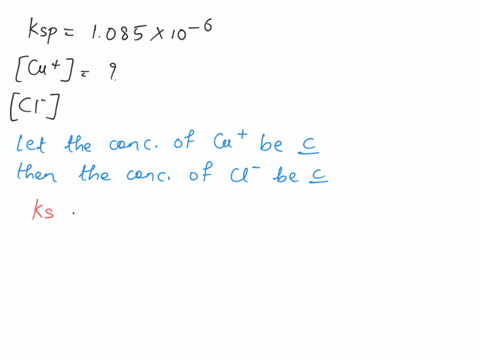 Ksp = 1.085 × 10⁻⁶
[Cu⁺] = ?
[Cl⁻]
Let the conc. of Cu⁺ be c
then the conc. of Cl⁻ be c
Ks